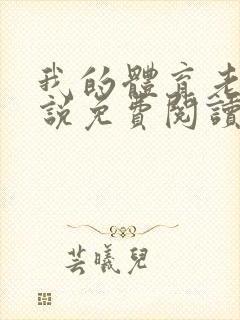 我的體育老
說免費閱讀
芸曦兒